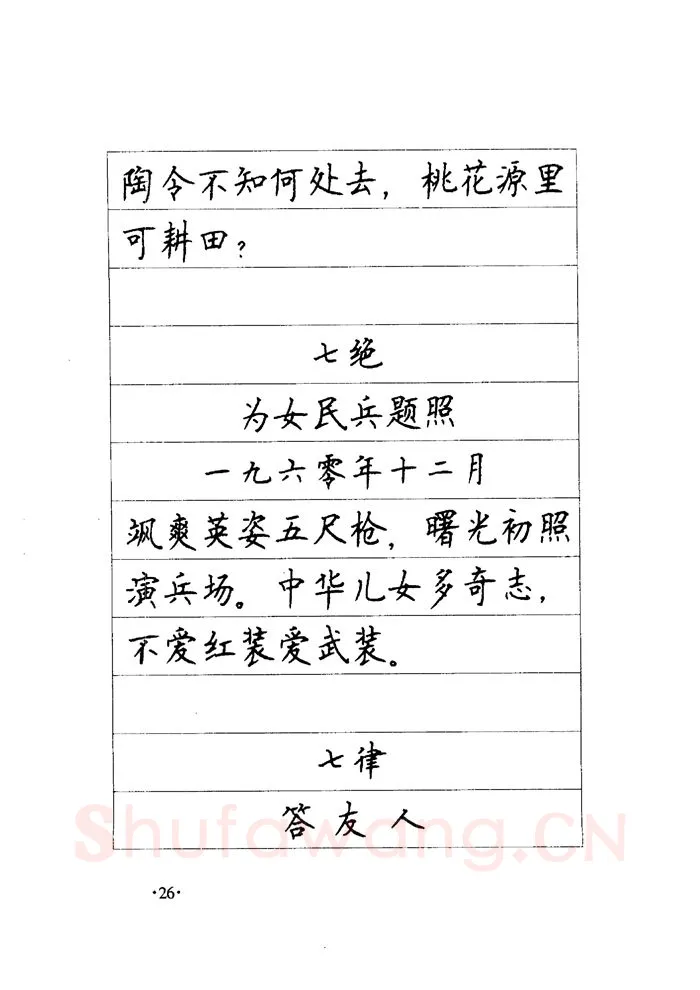 陶令不知何处去，桃花源里
可耕田？
七绝
为女民兵题照
一九六零年十二月
飒爽英姿五尺枪，曙光初照
演兵场。中华儿女多奇志，
不爱红装爱武装。
七律
答友人
Shufawang.CN
·26·